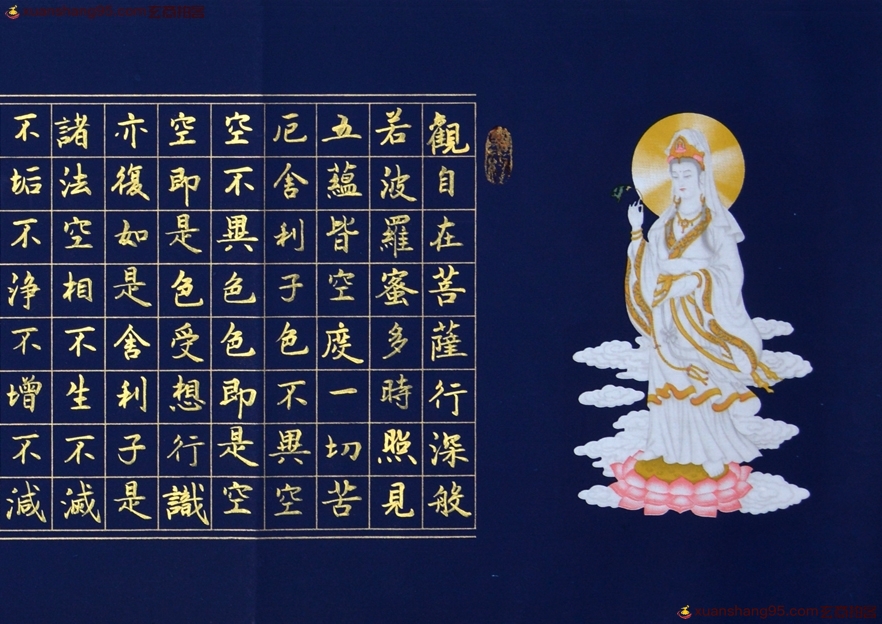 xuanshang95.com
觀自在菩薩行深般
若波羅蜜多時照見
五蘊皆空度一切苦
厄舍利子色不異空
空不異色色即是空
空即是色受想行識
亦復如是舍利子是
諸法空相不生不滅
不垢不浄不增不減
xuanshang95.com